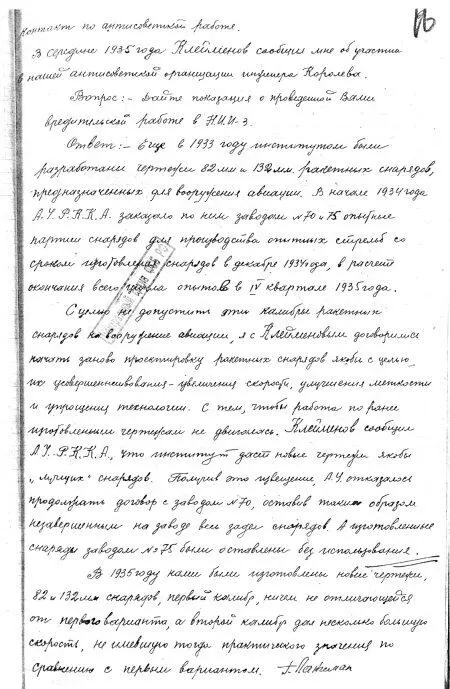 контакт по антисоветской работе.
В середине 1935 года Клейменов сообщил мне об участии
в нашей антисоветской организации инженера Королева.
Вопрос: - Дайте показания о проведенной Вами
вредительской работе в НИИ-3.
Ответ: - Еще в 1933 году институтом были
разработаны чертежи 82 мм и 132 мм. ракетных снарядов,
предназначенных для вооружения авиации. В начале 1934 года
А.У.Р.К.К.А. заказало по ним заводам №70 и 75 опытные
партии снарядов для производства опытных стрельб со
сроком изготовления снарядов в декабре 1934 года, в расчете
окончания всего опытов в IV квартале 1935 года.
С целью не допустить эти калибры ракетных
снарядов на вооружение авиации, я с Клейменовым договорились
начать заново проектировку ракетных снарядов якобы с целью
их усовершенствования - увеличения скорости, улучшения меткости
и упрощения технологии. С тем, чтобы работа по ранее
изготовленным чертежам не двигалась, Клейменов сообщил
А.У.Р.К.К.А., что институт даст новые чертежи якобы
"лучших" снарядов. Получив это извещение, А.У. отказалось
продолжать договор с заводом №70, оставив таким образом
незавершенным на заводе весь задел снарядов. А изготовленные
снаряды заводом №75 были оставлены без использования.
В 1935 году нами были изготовлены новые чертежи,
82 и 132 мм снарядов, первый калибр, ничем не отличающейся
от первого варианта, а второй калибр дал несколько большую
скорость, не имевшую тогда практического значения по
сравнению с первым вариантом. Г. Лангемак